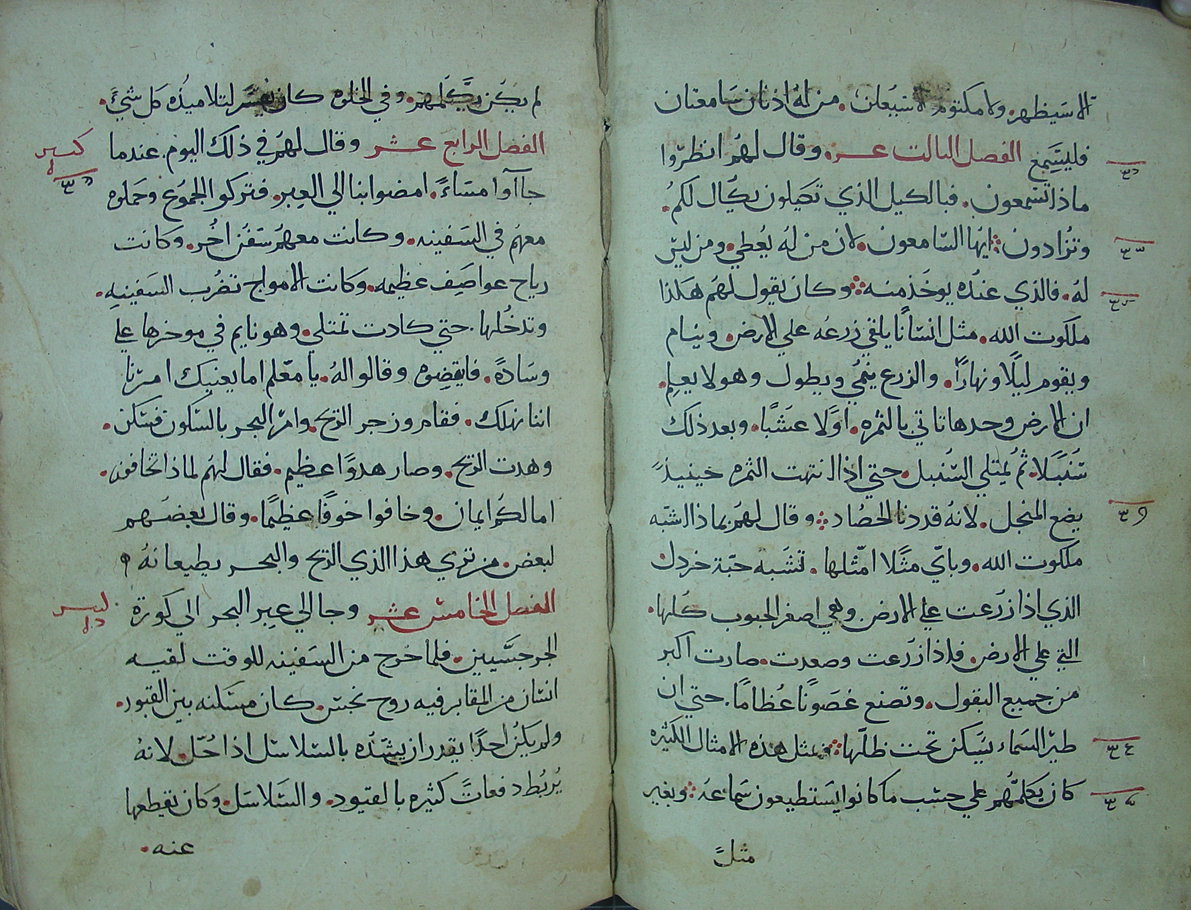 الا سيظهر. ولا مكتوم الا سيعلن. من له اذنان سامعتان
فليسمع الفصل الثالث عشر. وقال لهم انظروا
ماذا تسمعون. فبالكيل الذي تكيلون يكال لكم.
وتزادون ايها السامعون. لان من له يُعطي. ومن ليس
له. فالذي عنده يوخذ منه وكان يقول لهم هكذا
ملكوت الله. مثل انسانًا يلقي زرعه علي الارض. وينام
ويقوم ليلًا ونهارًا. والزرع ينمي ويطول وهو لا يعلم.
ان الارض وحدها تاتي بالثمره. اولًا عشبًا. وبعد ذلك
سنبلا. ثم يمتلي السنبل. حتي اذا انتهت الثمره حينيذٍ
يضع المنجل. لانه قد دنا الحصاد وقال لهم بماذا اشبّه
ملكوت الله. وباي مثلًا امثلها. تشبه حبّة خردل
الذي اذا زرعت علي الارض وهي اصغر الحبوب كلها.
التي علي الارض. فاذا زرعت وصعدت. صارت اكبر
من جميع البقول. وتصنع غصونًا عظامًا. حتي ان
طير السماء يسكن تحت ظلها بمثل هذه الامثال الكثيره
كان يكلمهم علي حسب ما كانوا يستطيعون سماعه وبغير
مثل
لم يكن يكلمهم. وفي الخلوه كان يفسر لتلاميذه كل شيء.
الفصل الرابع عشر وقال لهم في ذلك اليوم. عندما
جاآوا مساءً. امضوا بنا الي العبر. فتركوا الجموع وحملوه
معهم في السفينه. وكانت معهم سفن اخر. وكانت
رياح عواصف عظيمه. وكانت الامواج تضرب السفينه.
وتدخلها. حتي كادت تمتلي. وهو نايم في موخرها علي
وسادة. فايقضوه وقالوا له. يا معلم اما يعنيك امرنا
اننا نهلك. فقام وزجر الريح. وامر البحر بالسكون فسكن.
وهدت الريح. وصار هدوًا عظيم. فقال لهم لماذا تخافون.
اما لكم ايمان. وخافوا خوفًا عظيمًا. وقال بعضهم
لبعض. من تري هذا الذي الريح والبحر يطيعانه
الفصل الخامس عشر وجا الي عبر البحر الي كورة
الجرجسيين. فلما خرج من السفينه للوقت لقيه
انسان من المقابر فيه روح نجس. كان مسكنه بين القبور.
ولم يكن احدًا يقدر ان يشده بالسلاسل اذا حُل. لانه
يُربُط دفعات كثيره بالقيود. والسلاسل. وكان يقطعها
عنه.